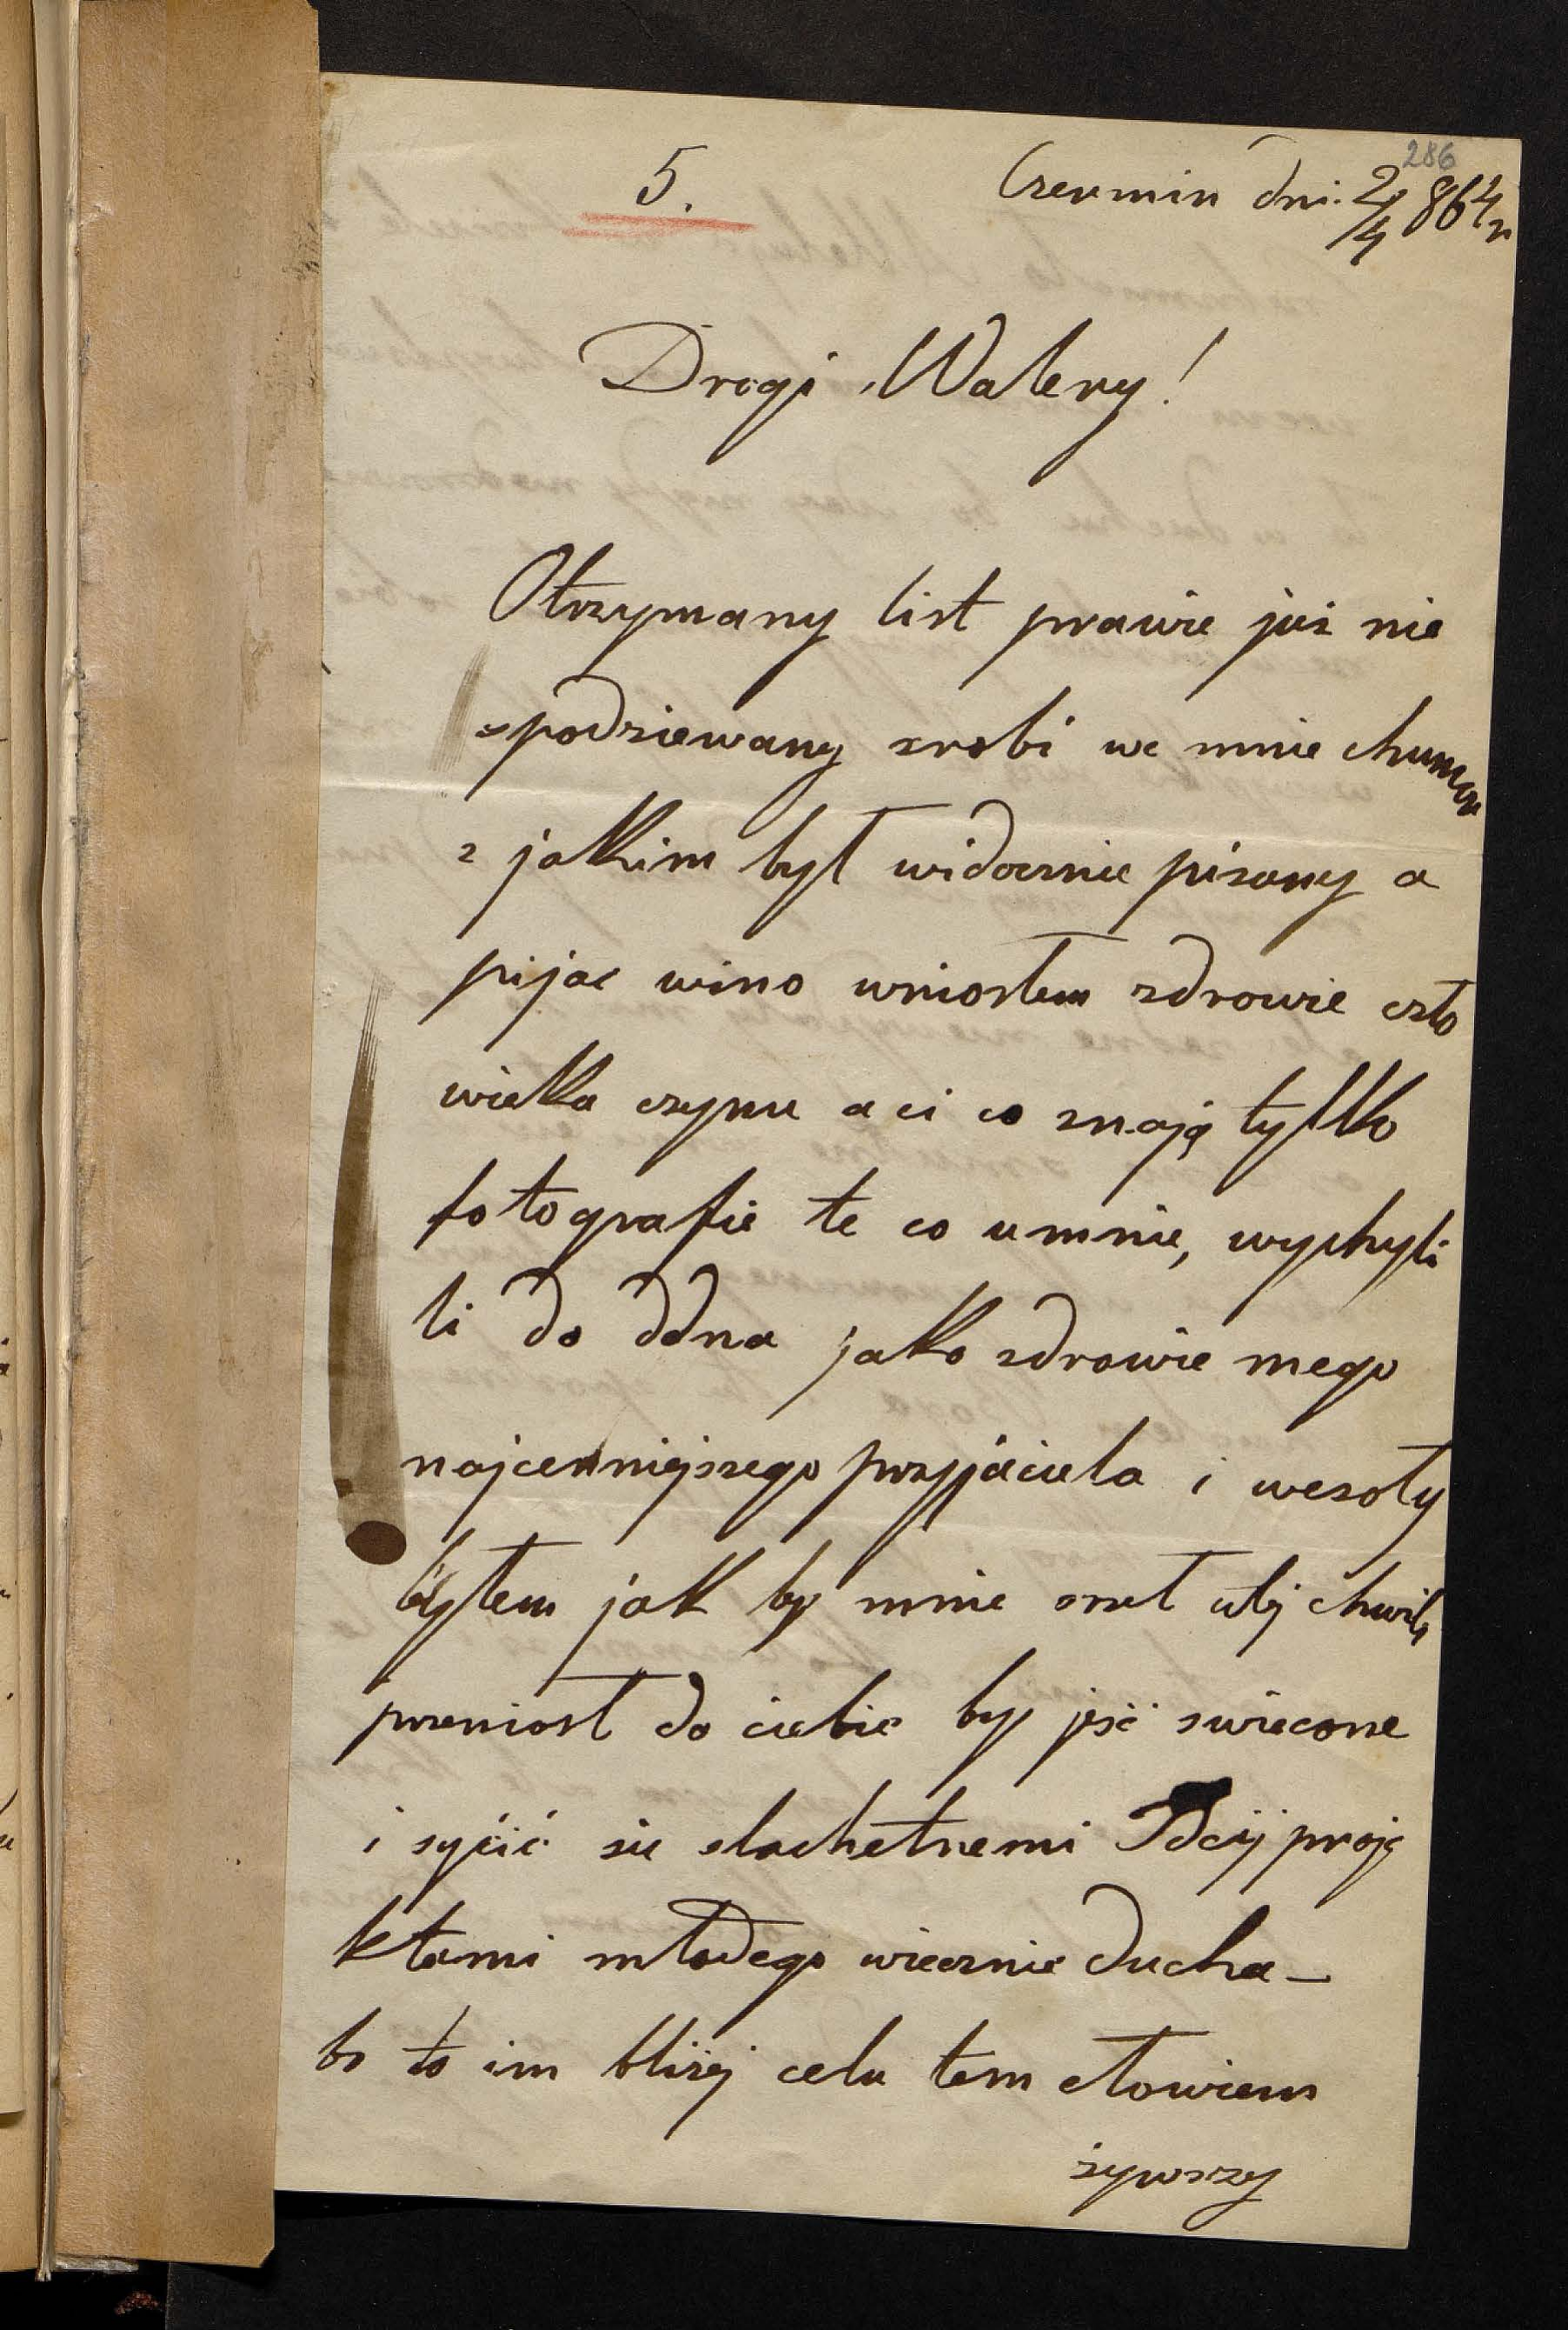 286
5.
Czermin dni. 2/4 864 r
Drogi Walery!
Otrzymany list prawie już nie
spodziewany zrobi we mnie chumor
z jakkim był widocznie pisany a
pijac wino wniosłem zdrowie czło
wiekka czynu a ci co znają tylko
fotografie te co umnie, wychyli
li do ddna jakko zdrowie mego
najcenniejszego przyjaciela i wesoły
byłem jakk by mnie wtej chwili
przeniosł do ciebie by jeść swiecone
i syćić sie slachetnemi proje
ktami młodego wiecznie ducha –
bo to im bliżej celu tem człowiem
żywszy